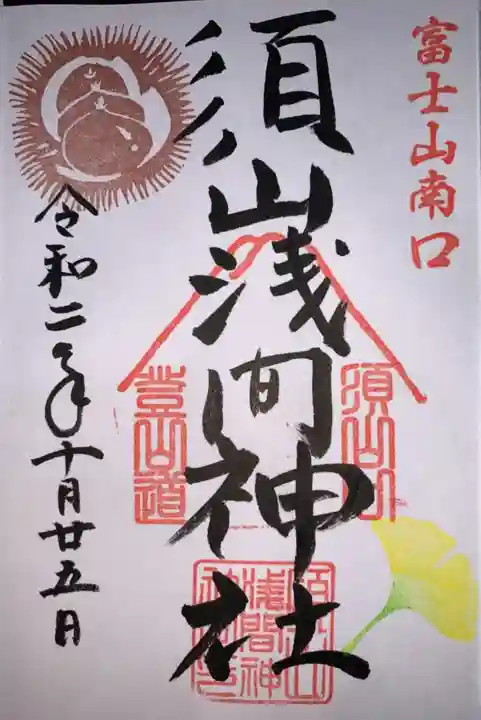 富士山南口
須山浅間神社
須山口
登山道
須山浅間神社
令和二年十月廿五日